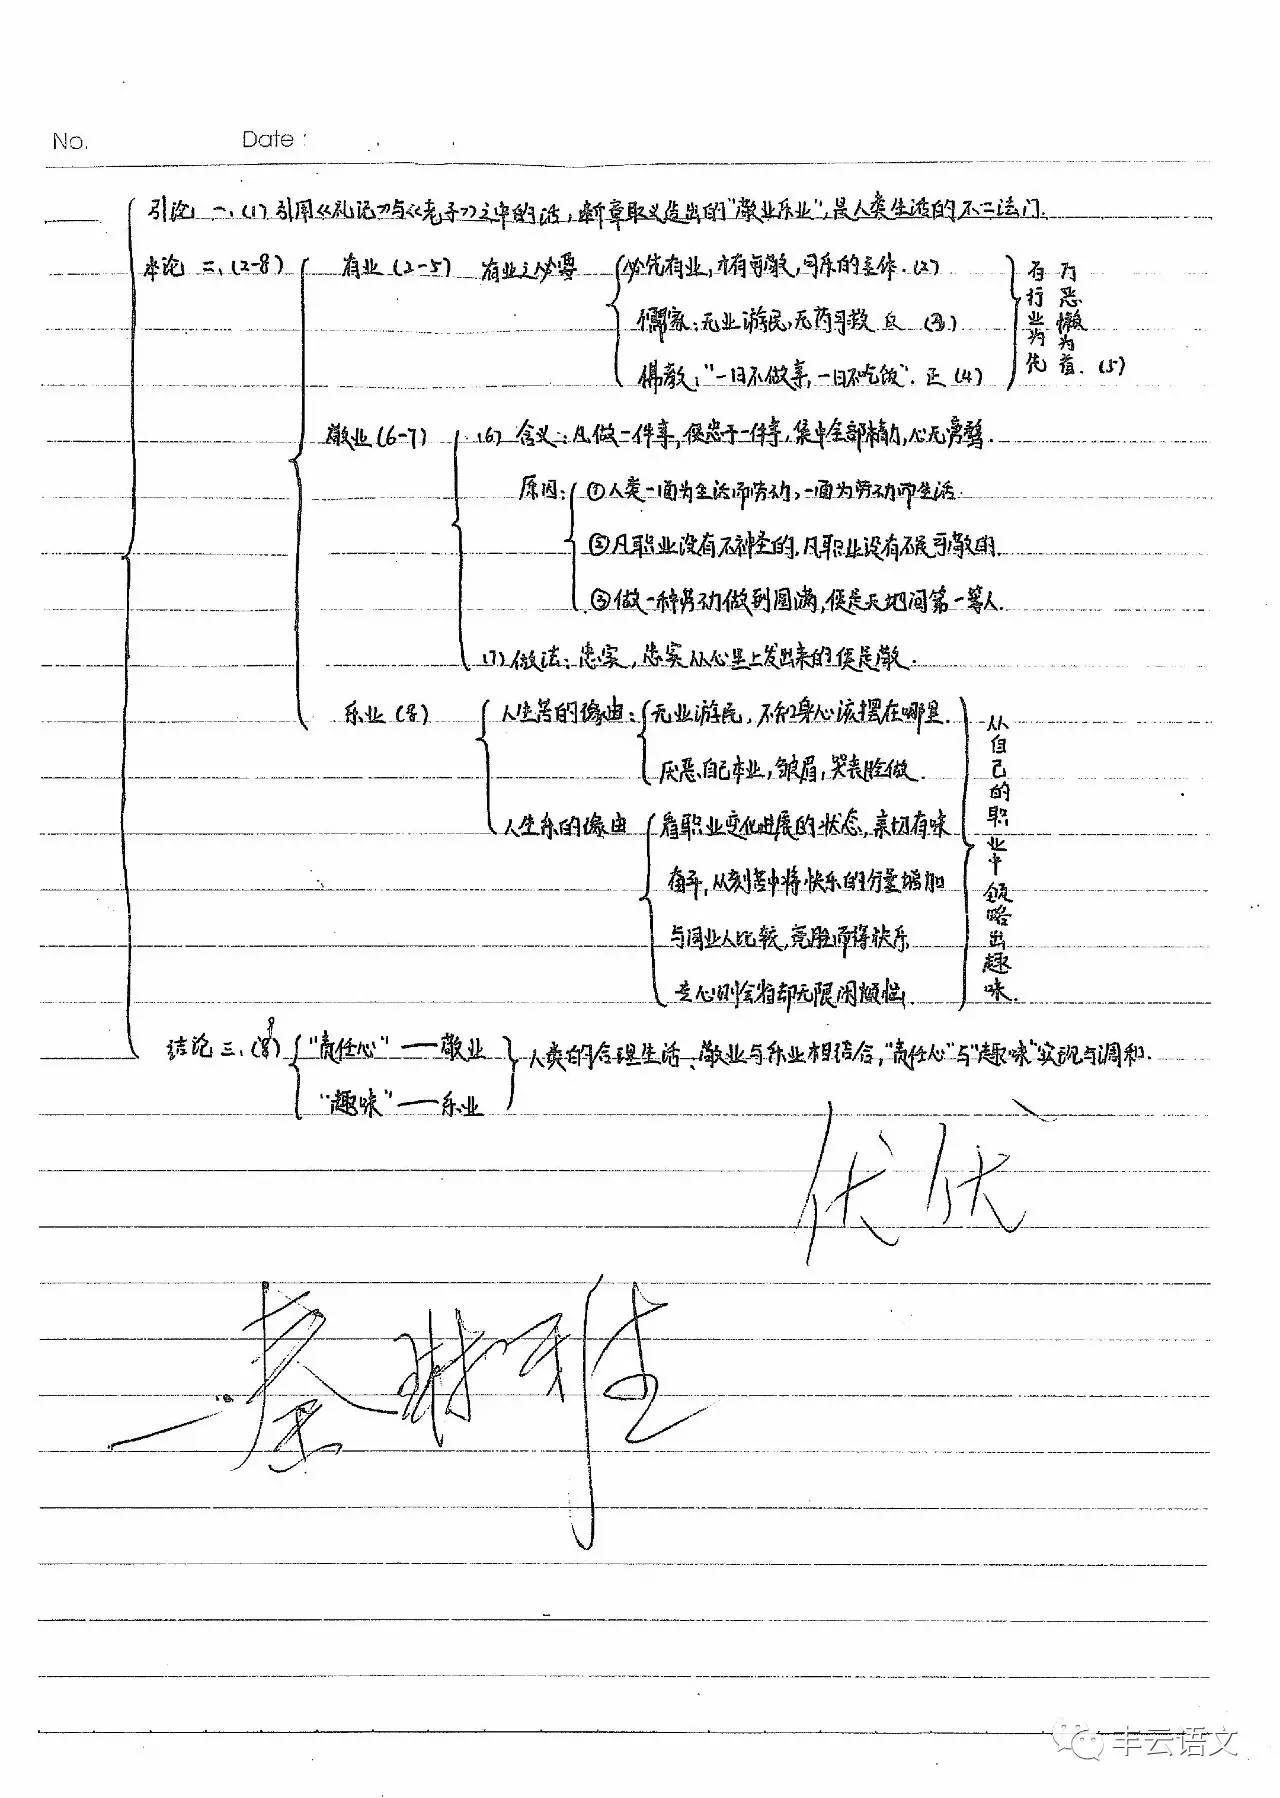 No. Date:
引论 一、(1) 引用《礼记》与《老子》之中的话，断章取义造出的“敬业乐业”，是人类生活的不二法门.
本论 二、(2-8) 有业(2-5) 有业之必要 必先有业，才有可敬，可乐的主体.(2)
儒家：无业游民，无药可救 反 (3)
佛教：“一日不做事，一日不吃饭”. 正 (4)
有行业为先
万恶懒为首.(5)
敬业(6-7) (6) 含义：凡做一件事，便忠于一件事，集中全部精力，心无旁骛.
原因：①人类一面为生活而劳动，一面为劳动而生活.
②凡职业没有不神圣的，凡职业没有不是可敬的.
③做一种劳动做到圆满，便是天地间第一等人.
(7)做法：忠实，忠实从心里上发出来的便是敬.
乐业(8) 人生苦的缘由：无业游民，不知身心该摆在哪里.
厌恶自己本业，皱眉，哭丧脸做.
人生乐的缘由 看职业变化进展的状态，亲切有味
奋斗，从刻苦中将快乐的分量增加
与同业人比较，竞胜而得快乐
专心时会省却无限闲烦恼.
从自己的职业中领略出趣味.
结论 三、(9) “责任心”——敬业
“趣味”——乐业
人类的合理生活、敬业与乐业相结合，“责任心”与“趣味”实现与调和.
优优
秦琳雅
丰云语文